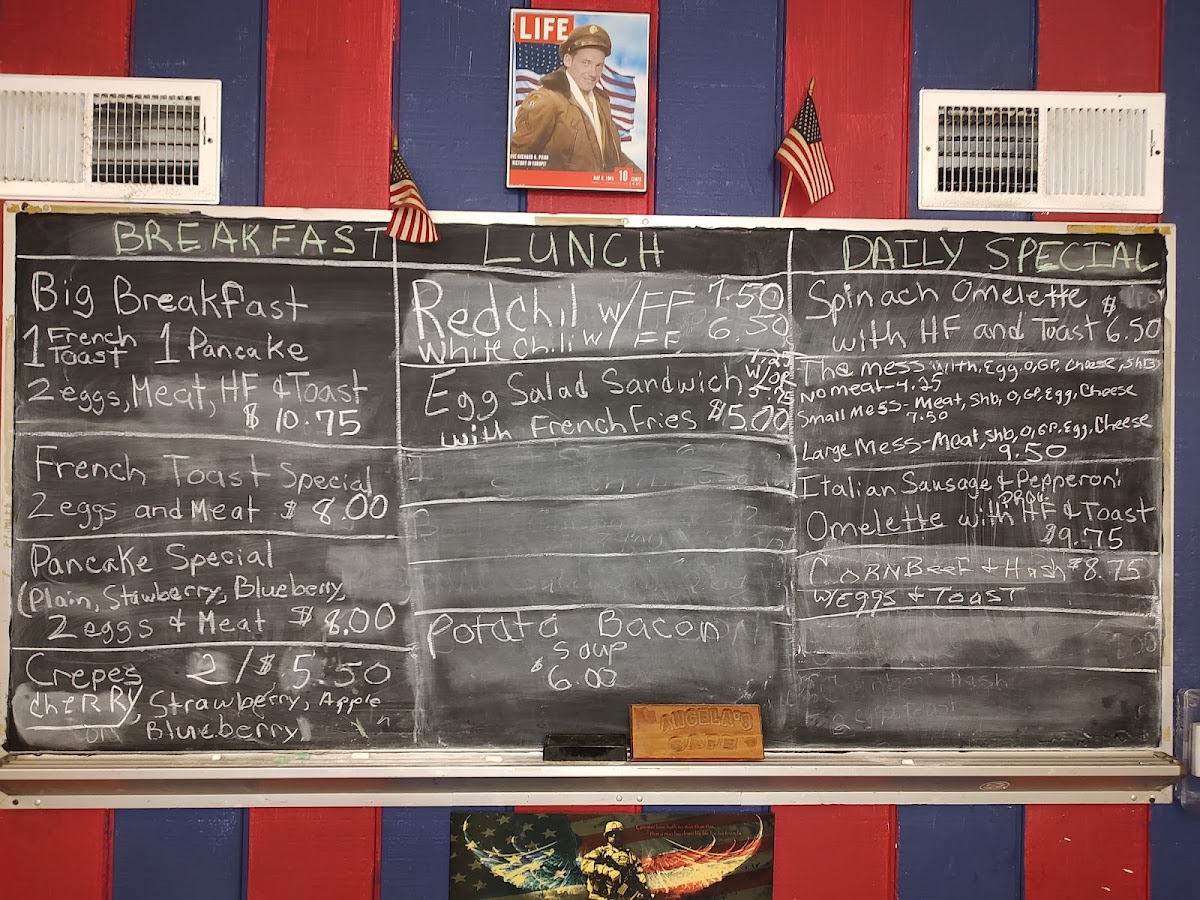 LIFE
MAY 8, 1945 10 CENTS
BREAKFAST
Big Breakfast
1 French Toast 1 Pancake
2 eggs, Meat, HF & Toast
$ 10.75
French Toast Special
2 eggs and Meat $ 8.00
Pancake Special
(Plain, Stawberry, Blueberry,
2 eggs & Meat $ 8.00
Crepes 2/$ 5.50
cheRRy, Strawberry, Apple
Blueberry
LUNCH
Red Chil w/FF 7.50
White Chili w/ FF 6.50
Egg Salad Sandwich
with French Fries $5.00
Potato Bacon
Soup
$6.00
DAILY SPECIAL
Spinach Omelette $
with HF and Toast 6.50
The mess with, Egg, O, GP, Cheese, ShB
No meat-4.25
Small Mess- Meat, Shb, O, GP, Egg, Cheese
7.50
Large Mess- Meat, Shb, O, GP, Egg, Cheese
9.50
Italian Sausage & Pepperoni
Prov.
Omelette with HF & Toast
$9.75
CORN BeeF & Hash $8.75
W/EGGS & TOAST
ANGELA'S
CAFE